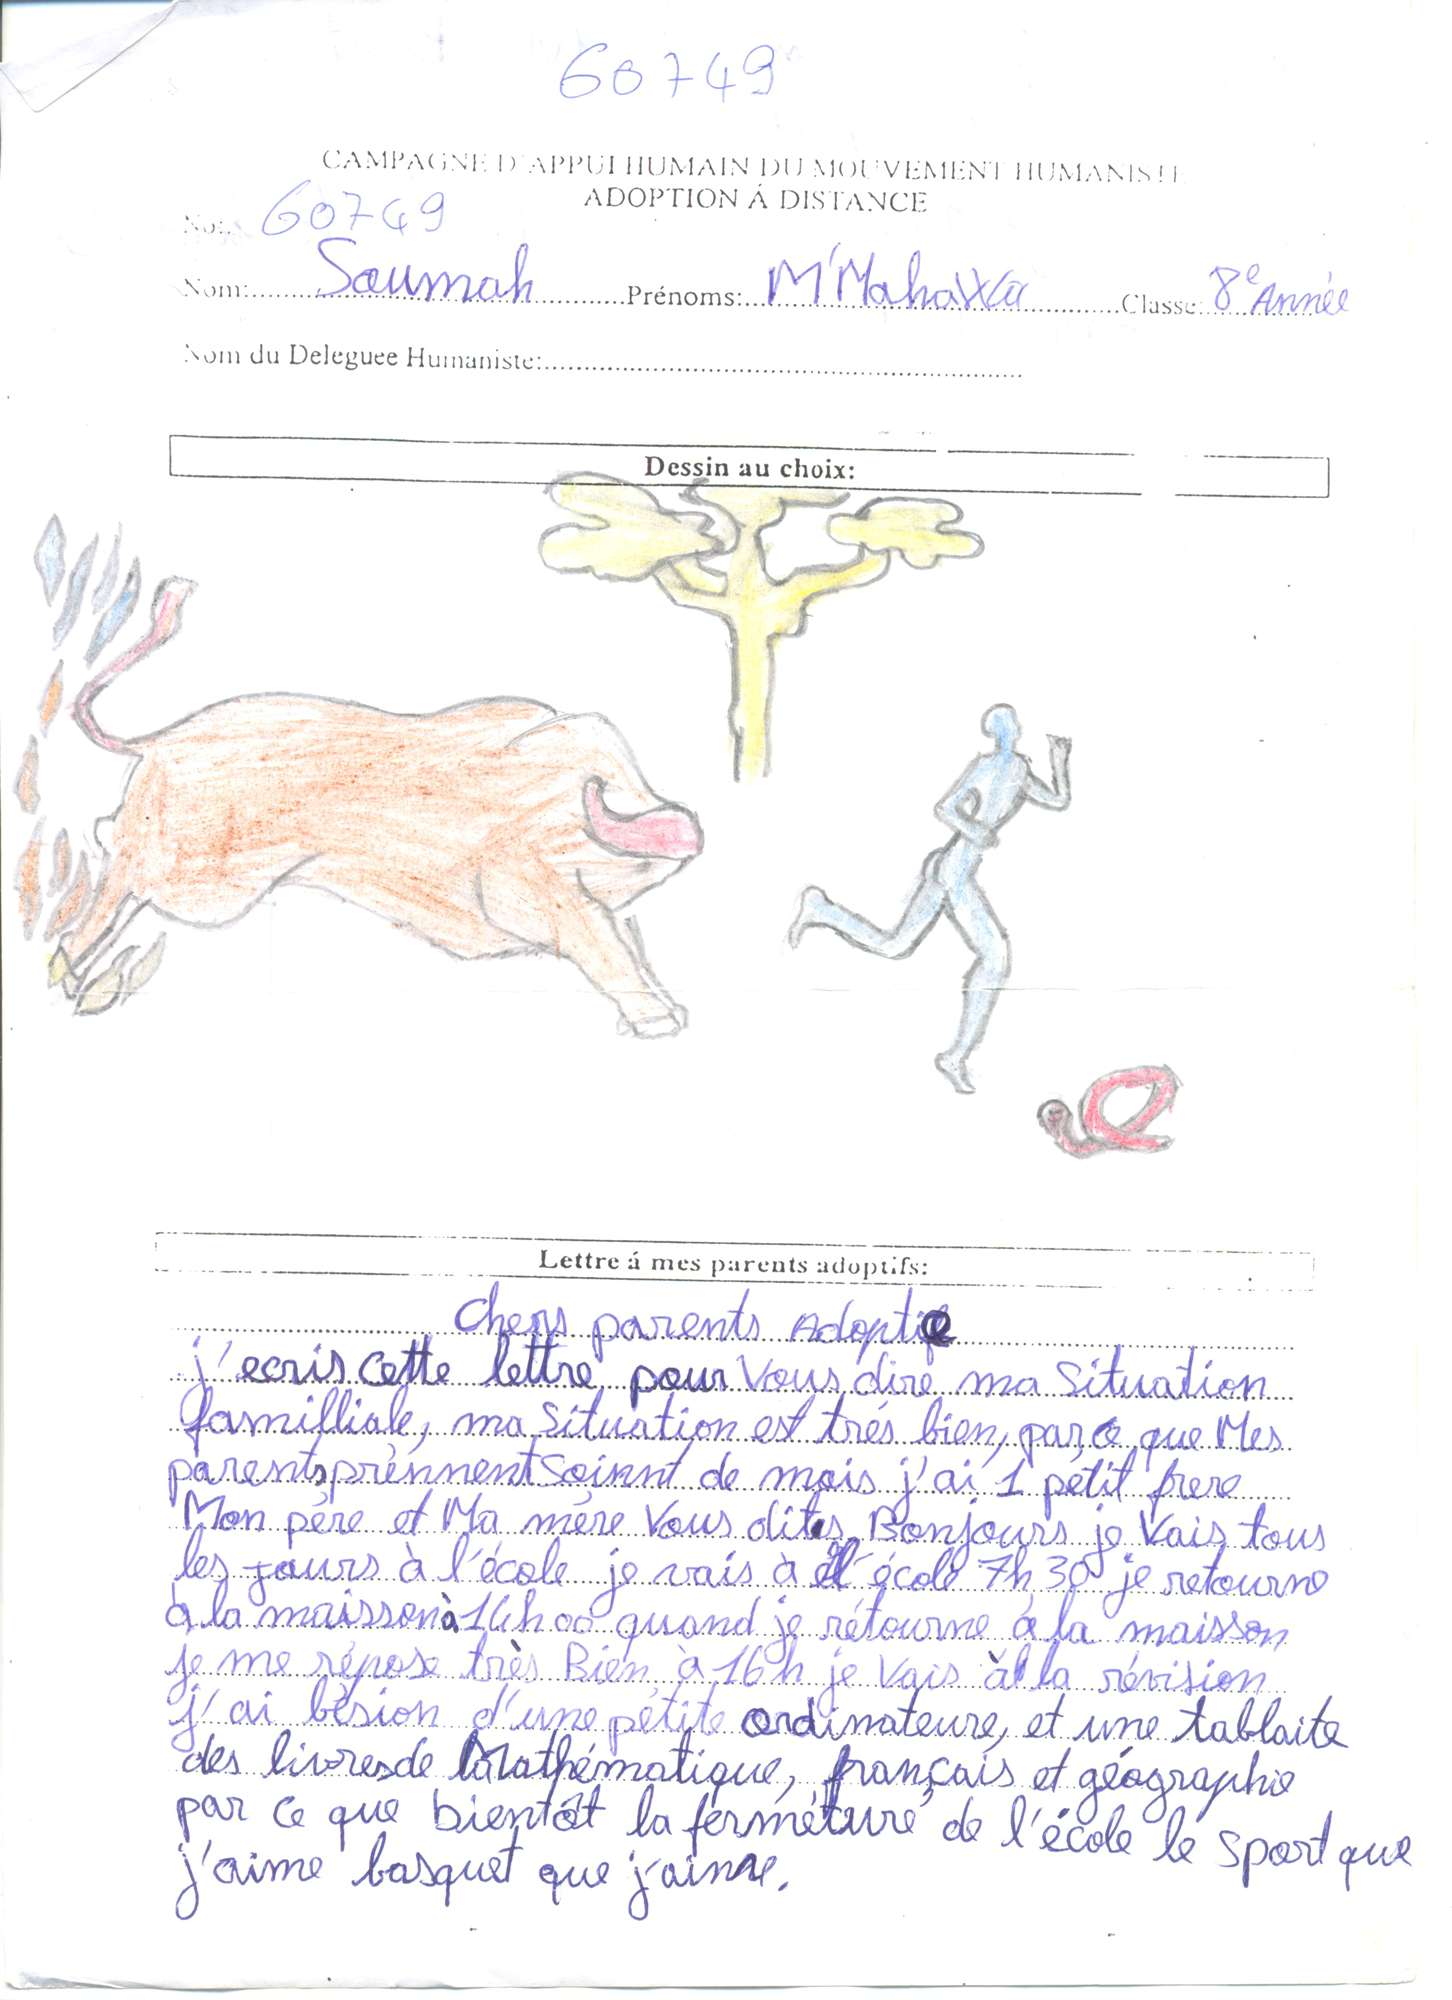 60749
CAMPAGNE D'APPUI HUMAIN DU MOUVEMENT HUMANISTE
ADOPTION Á DISTANCE
No: 60749
Nom: Soumah Prénoms: M'Mahawa Classe: 8e Année
Nom du Deleguee Humaniste:
Dessin au choix:
Lettre á mes parents adoptifs:
Chers parents Adoptif
j'ecris cette lettre pour Vous dire ma Situation
familliale, ma Situation est trés bien, parce que Mes
parents prénnent soinnt de mois j'ai 1 pétit frere
Mon pére et Ma mére Vous dites Bonjours je Vais tous
les jours à l'école je vais à l'école 7h 30 je retourne
à la maisson à 14h00 quand je rétourne á la maisson
je me répose très Bien à 16h je Vais à la révision
j'ai bésion d'une pétite ordinateure, et une tablaite
des livres de Mathématique, français et géographie
par ce que bientôt la ferméture de l'école le sport que
j'aime basquet que j'aime.